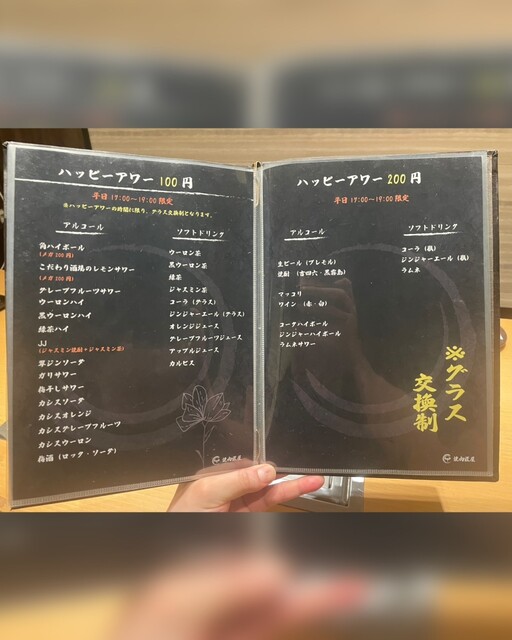 ハッピーアワー 100 円
平日 17:00〜19:00 限定
※ハッピーアワーの時間に限り、グラス交換制となります。
アルコール
角ハイボール
(メガ 200 円)
こだわり酒場のレモンサワー
(メガ 200 円)
グレープフルーツサワー
ウーロンハイ
黒ウーロンハイ
緑茶ハイ
JJ
(ジャスミン焼酎+ジャスミン茶)
翠ジンソーダ
ガリサワー
梅干しサワー
カシスソーダ
カシスオレンジ
カシスグレープフルーツ
カシスウーロン
梅酒(ロック・ソーダ)
ソフトドリンク
ウーロン茶
黒ウーロン茶
緑茶
ジャスミン茶
コーラ(グラス)
ジンジャーエール(グラス)
オレンジジュース
グレープフルーツジュース
アップルジュース
カルピス
ハッピーアワー 200 円
平日 17:00〜19:00 限定
アルコール
生ビール(プレモル)
焼酎(吉四六・黒霧島)
マッコリ
ワイン(赤・白)
コークハイボール
ジンジャーハイボール
ラムネサワー
ソフトドリンク
コーラ(瓶)
ジンジャーエール(瓶)
ラムネ
※グラス
交換制